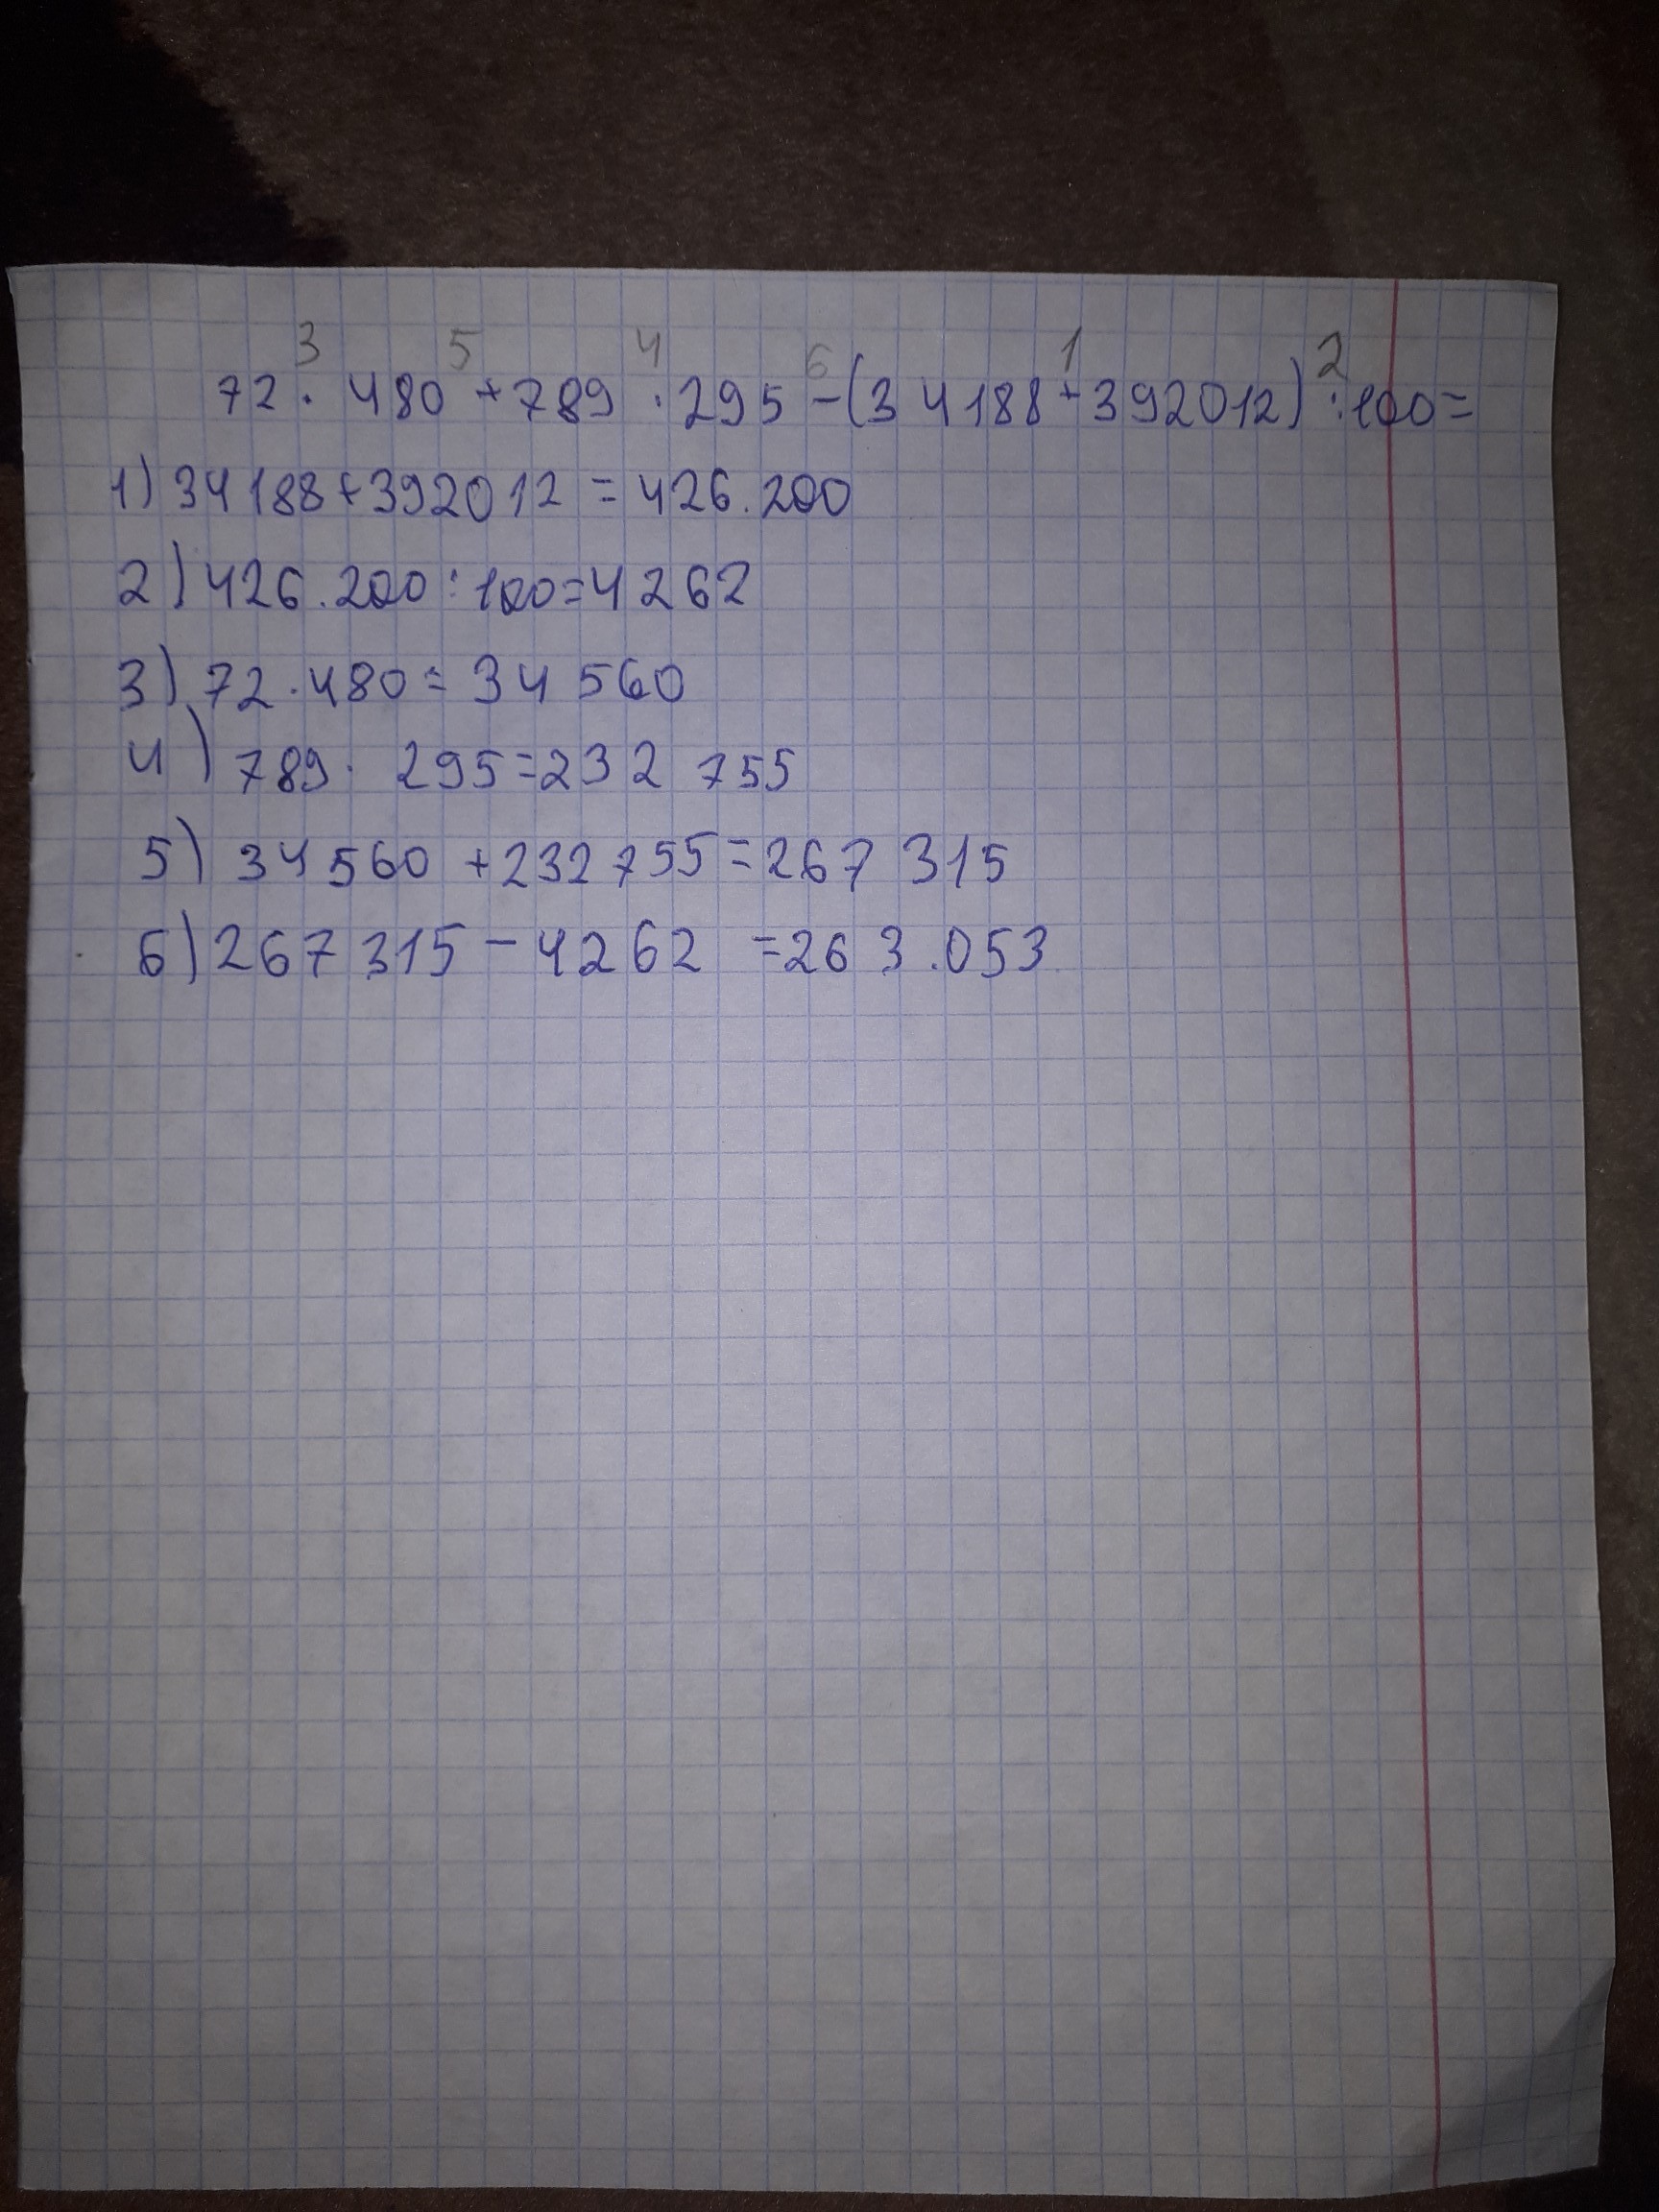 3 5 4 6 1 2
72 · 480 + 789 · 295 - (34188 + 392012) : 100 =
1) 34188 + 392012 = 426.200
2) 426.200 : 100 = 4262
3) 72 · 480 = 34 560
4) 789 · 295 = 232 755
5) 34560 + 232755 = 267 315
6) 267315 - 4262 = 263.053